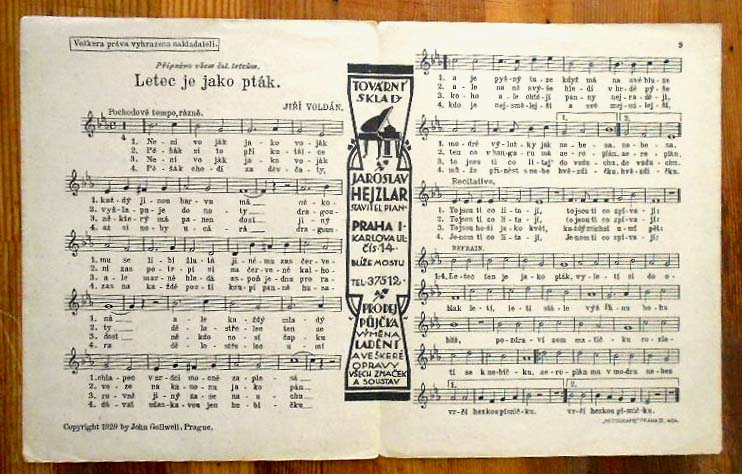 Veškera práva vyhrazena nakladateli.
Připsáno všem čsl. letcům.
Letec je jako pták.
JIŘÍ VOLDÁN.
Pochodové tempo, rázně.
4
1. Ne-ní vo-ják ja-ko vo-ják
2. Pě-šák ni to při ku-tál-ce
3. Ne-ní vo-ják ja-ko vo-ják
4. Pě-šák cho-dí za děv-ča-ty,
1. kaž-dý ji-nou bar-vu má ně-ko-
2. vy-šla-pu-je do no-ty dra-goun-
3. ně-kte-rý má pa-nen do-sí ji-ný
4. až si no-hy u-cá-rá dra-goun-
1. mu se lí-bí žlu-tá ji-né-mu zas čer-ve-
2. ni zas po-tr-pí si na čer-ve-né kal-ho-
3. a le mar-ně hle-dá
4. zas na kaž-dé pou-ti kou-pí pan-ně hu-sa-
1. ná a-le kaž-dý mla-dý
2. ty dě-lo-stře-lec ten se
3. dost ně-kdo no-sí čap-ku
4. ra dě-lo-stře-lec u-mí
1. chla-pec v sr-dci moc-ně za-ple-sá
2. ve-ze na ka-no-nu ja-ko pán
3. ro-vně ji-ný za-se na u-chu
4. dá-vat uďas-ka-vou jen hu-bi-čku
Copyright 1929 by John Gollwell, Prague.
TOVÁRNÍ
SKLAD
JAROSLAV
HEJZLAR
STAVITEL PIAN
PRAHA I.
KARLOVA UL.
ČÍS. 14.
BLÍŽE MOSTU
TEL. 37512.
PRODEJ
PŮJČKA
VÝMĚNA
LADĚNÍ
A VEŠKERÉ
OPRAVY
VŠECH ZNAČEK
A SOUSTAV
3
1. a je pyš-ný tu-ze když má na své blu-ze
2. a-le na ně svý-še hle-dí v hr-dé pý-še
3. ko-ho a-le chtě-jí pan-ny nej-ra-dě-ji,
4. kdo je nej-smě-lej-ší a své nej-mi-lej-ší,
1. 2.
1. mo-dré vý-lož-ky jak ne-be-sa. ne-be-sa.
2. ten co v han-ga-ru má ae-ro-plán. ae-ro-plán.
3. to jsou ti co lí-ta-jí do vzdu-chu. do vzdu-chu.
4. mů-že při-nést s ne-be hvě-zdi-čku. hvě-zdi-čku.
Recitativ.
1. To jsou ti co lí-ta-jí, to jsou ti co zpí-va-jí:
2. To jsou ti co lí-ta-jí, to jsou ti co zpí-va-jí:
4. Je nom ti co lí-ta-jí, je nom ti co zpí-va-jí:
REFRAIN.
1-4. Le-tec ten je ja-ko pták, vy-le-tí si do o-
blak le-tí, le-tí stá-le výš šín-u be-hu
blíž, po-zdra-ví zem ma-tič-ku ro-zle-
tí se k ne-bíč-ku, ae-ro-plán mu v mo-dru ne-bes
1. 2.
vr-čí hez-kou pís-nič-ku. vr-čí hez-kou pís-nič-ku.